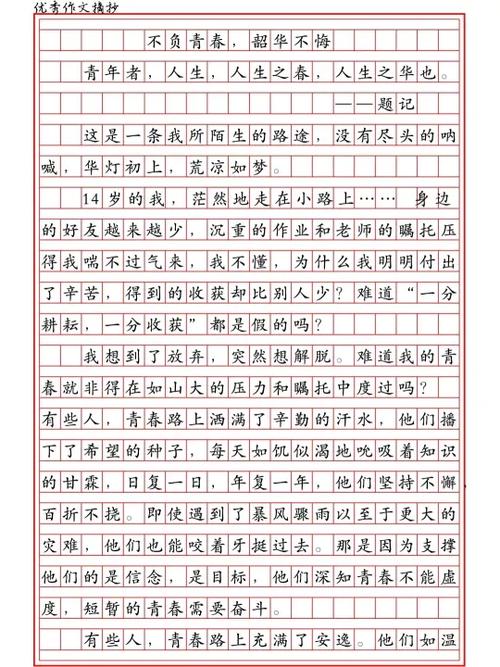 优秀作文摘抄
不负青春，韶华不悔
青年者，人生，人生之春，人生之华也。
——题记
这是一条我所陌生的路途，没有尽头的呐
喊，华灯初上，荒凉如梦。
14岁的我，茫然地走在小路上…… 身边
的好友越来越少，沉重的作业和老师的瞩托压
得我喘不过气来，我不懂，为什么我明明付出
了辛苦，得到的收获却比别人少？难道“一分
耕耘，一分收获”都是假的吗？
我想到了放弃，突然想解脱。难道我的青
春就非得在如山大的压力和瞩托中度过吗？
有些人，青春路上洒满了辛勤的汗水，他们播
下了希望的种子，每天如饥似渴地吮吸着知识
的甘霖，日复一日，年复一年，他们坚持不懈
百折不挠。即使遇到了暴风骤雨以至于更大的
灾难，他们也能咬着牙挺过去。那是因为支撑
他们的是信念，是目标，他们深知青春不能虚
度，短暂的青春需要奋斗。
有些人，青春路上充满了安逸。他们如温